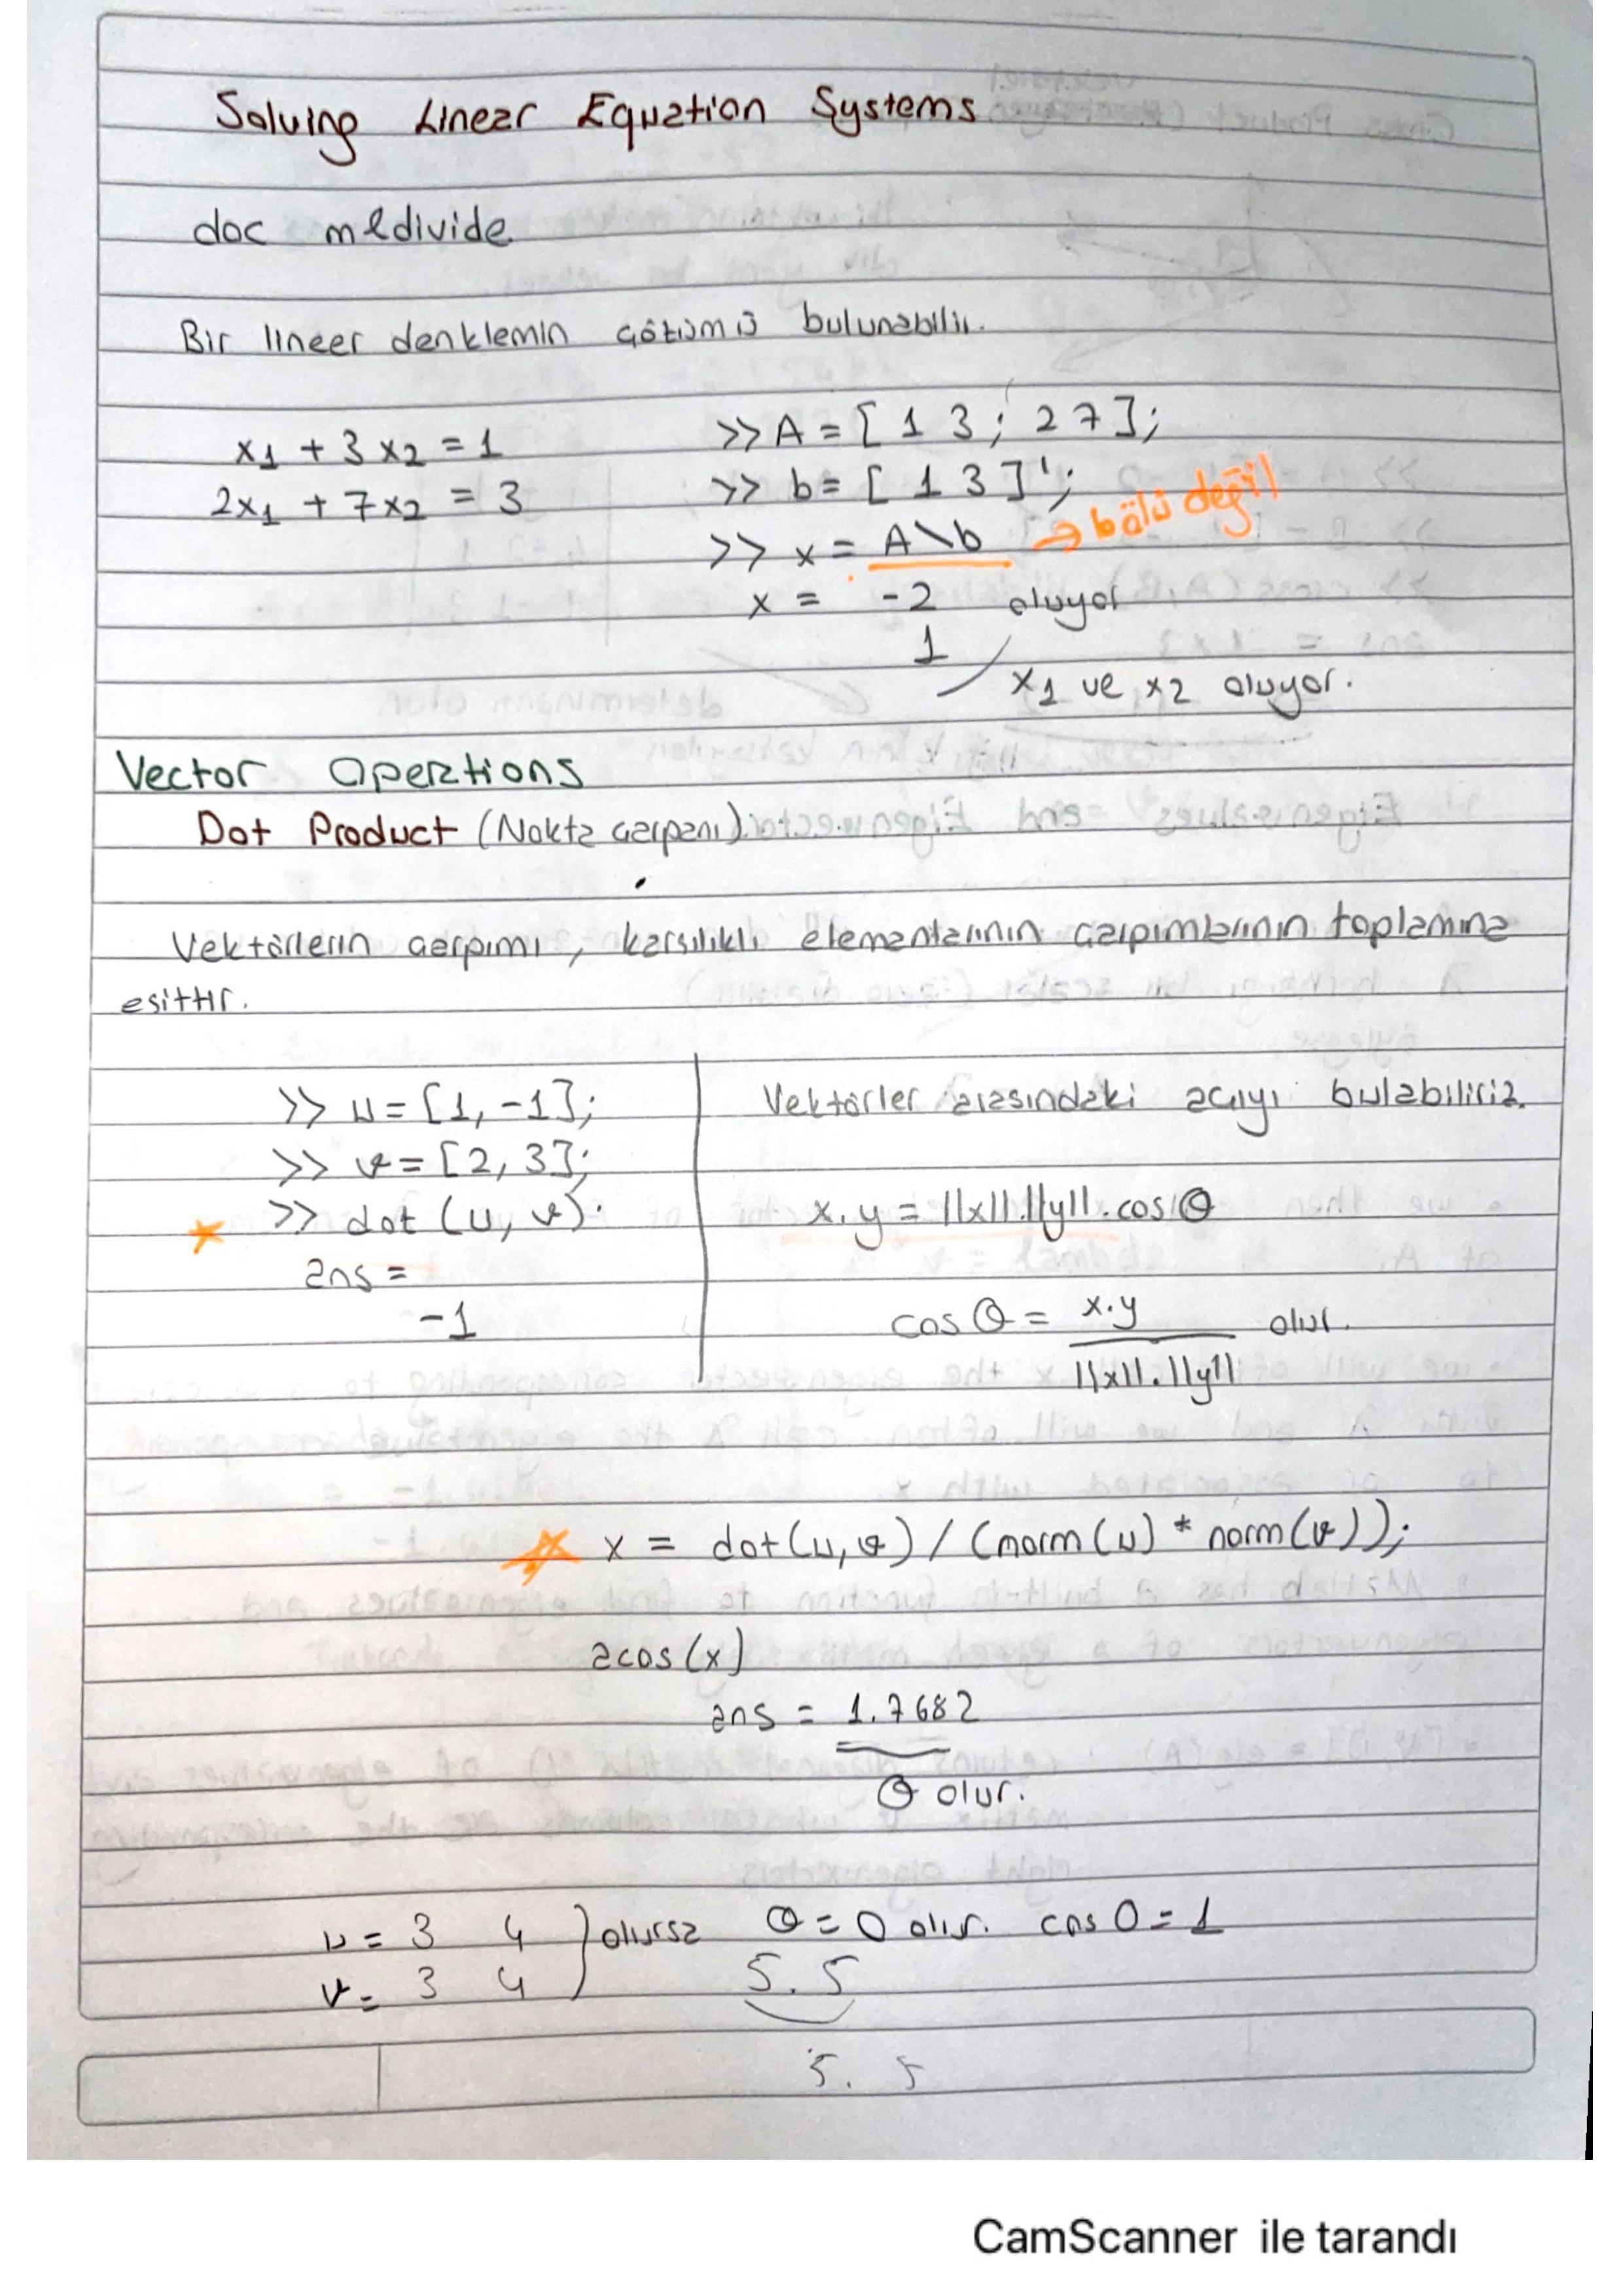 Solving Linear Equation Systems
doc mldivide
Bir lineer denklemin çözümü bulunabilir.
x1 + 3x2 = 1
2x1 + 7x2 = 3
>> A = [ 1 3 ; 2 7 ];
>> b = [ 1 3 ]';
>> x = A\b → bölü değil
x = -2 oluyor
1
x1 ve x2 oluyor.
Vector Operations
Dot Product (Nokta çarpanı)
Vektörlerin çarpımı, karsılıklı elemanlarının çarpımlarının toplamına
esittir.
>> u = [1, -1];
>> v = [2, 3];
>> dot (u, v).
ans =
-1
Vektörler arasındaki açıyı bulabiliriz.
x.y = ||x||.||y||.cosθ
cos θ = x.y / ||x||.||y|| olur.
x = dot(u,v) / (norm(u) * norm(v));
acos(x)
ans = 1.7682
θ olur.
u = 3 4 } olursa θ = 0 olur. cos 0 = 1
v = 3 4
5. 5
5. 5
CamScanner ile tarandı